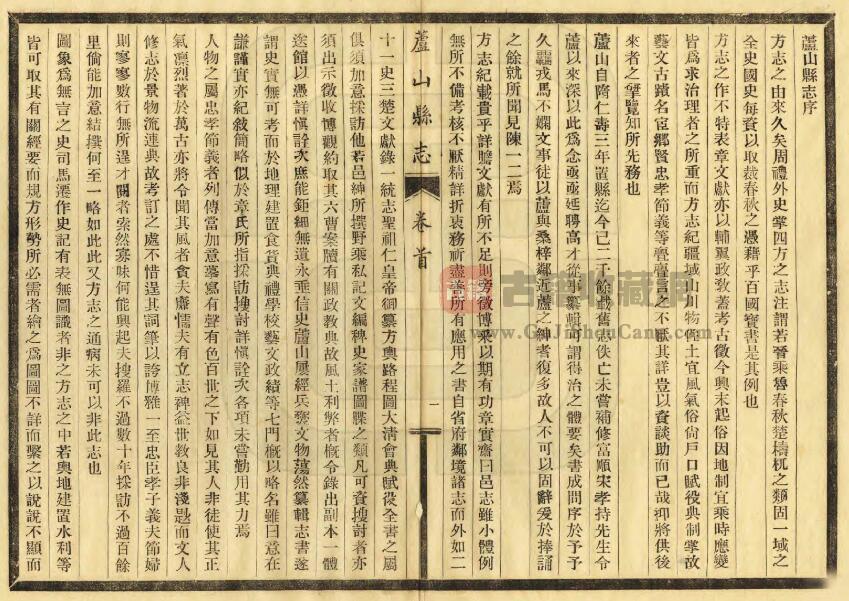 蘆山縣志序
方志之由來久矣周禮外史掌四方之志注謂若晉乘魯春秋楚檮杌之類固一域之
全史國史每資以取裁春秋之憑藉乎百國寶書是其例也
方志之作不特表章文獻亦以輔翼政敎蓄考古徵今興末起俗因地制宜乘時應變
皆為求治理者之所重而方志紀疆域山川物產土宜風氣俗尚戶口賦役典制掌故
藝文古蹟名宦鄉賢忠孝節義等亹亹言之不厭其詳豈以資談助而已哉抑將供後
來者之肇覽知所先務也
蘆山自隋仁壽三年置縣迄今已二千餘載舊志佚亡未嘗補修富順宋孝持先生令
蘆以來深以此為念亟亟延聘高才從事纂輯可謂得治之體要矣書成問序於予予
久羈戎馬不嫻文事徒以蘆與桑梓鄰近蘆之紳者復多故人不可以固辭爰於捧誦
之餘就所聞見陳一二焉
方志紀載貴乎詳贍文獻有所不足則旁徵博采以期有功章實齋曰邑志雖小體例
無所不備考核不厭精詳折衷務祈盡善所有應用之書自省府鄰境諸志而外如二
蘆山縣志
卷首
一
十一史三楚文獻錄一統志聖祖仁皇帝御纂方輿路程圖大淸會典賦役全書之屬
俱須加意採訪他若邑紳所撰野乘私記文編稗史家譜圖牒之類凡可資搜討者亦
須出示徵收博觀約取其六曹案牘有關政教典故風土利弊者槪令錄出副本一體
送館以憑詳愼詮次庶能鉅細無遺永垂信史蘆山屢經兵燹文物蕩然纂輯志書遂
謂史實無可考而於地理建置食貨典禮學校藝文政績等七門槪以略名雖曰意在
謙謹實亦紀敘簡略似於章氏所指採訪搜討詳愼詮次各項未嘗勤用其力焉
人物之屬忠孝節義者列傳當加意摹寫有聲有色百世之下如見其人非徒使其正
氣凜烈著於萬古亦將令聞其風者貪夫廉懦夫有立志裨益世教良非淺尠而文人
修志於景物流連典故考訂之處不惜逞其詞筆以誇博雅一至忠臣孝子義夫節婦
則寥寥數行無所逞才閱者索然寡味何能興起夫搜羅不過數十年採訪不過百餘
里倘能加意結撰何至一略如此此又方志之通病未可以非此志也
圖象為無言之史司馬遷作史記有表無圖識者非之方志之中若輿地建置水利等
皆可取其有關經要而規方形勢所必需者繪之為圖圖不詳而繫之以說說不顯而